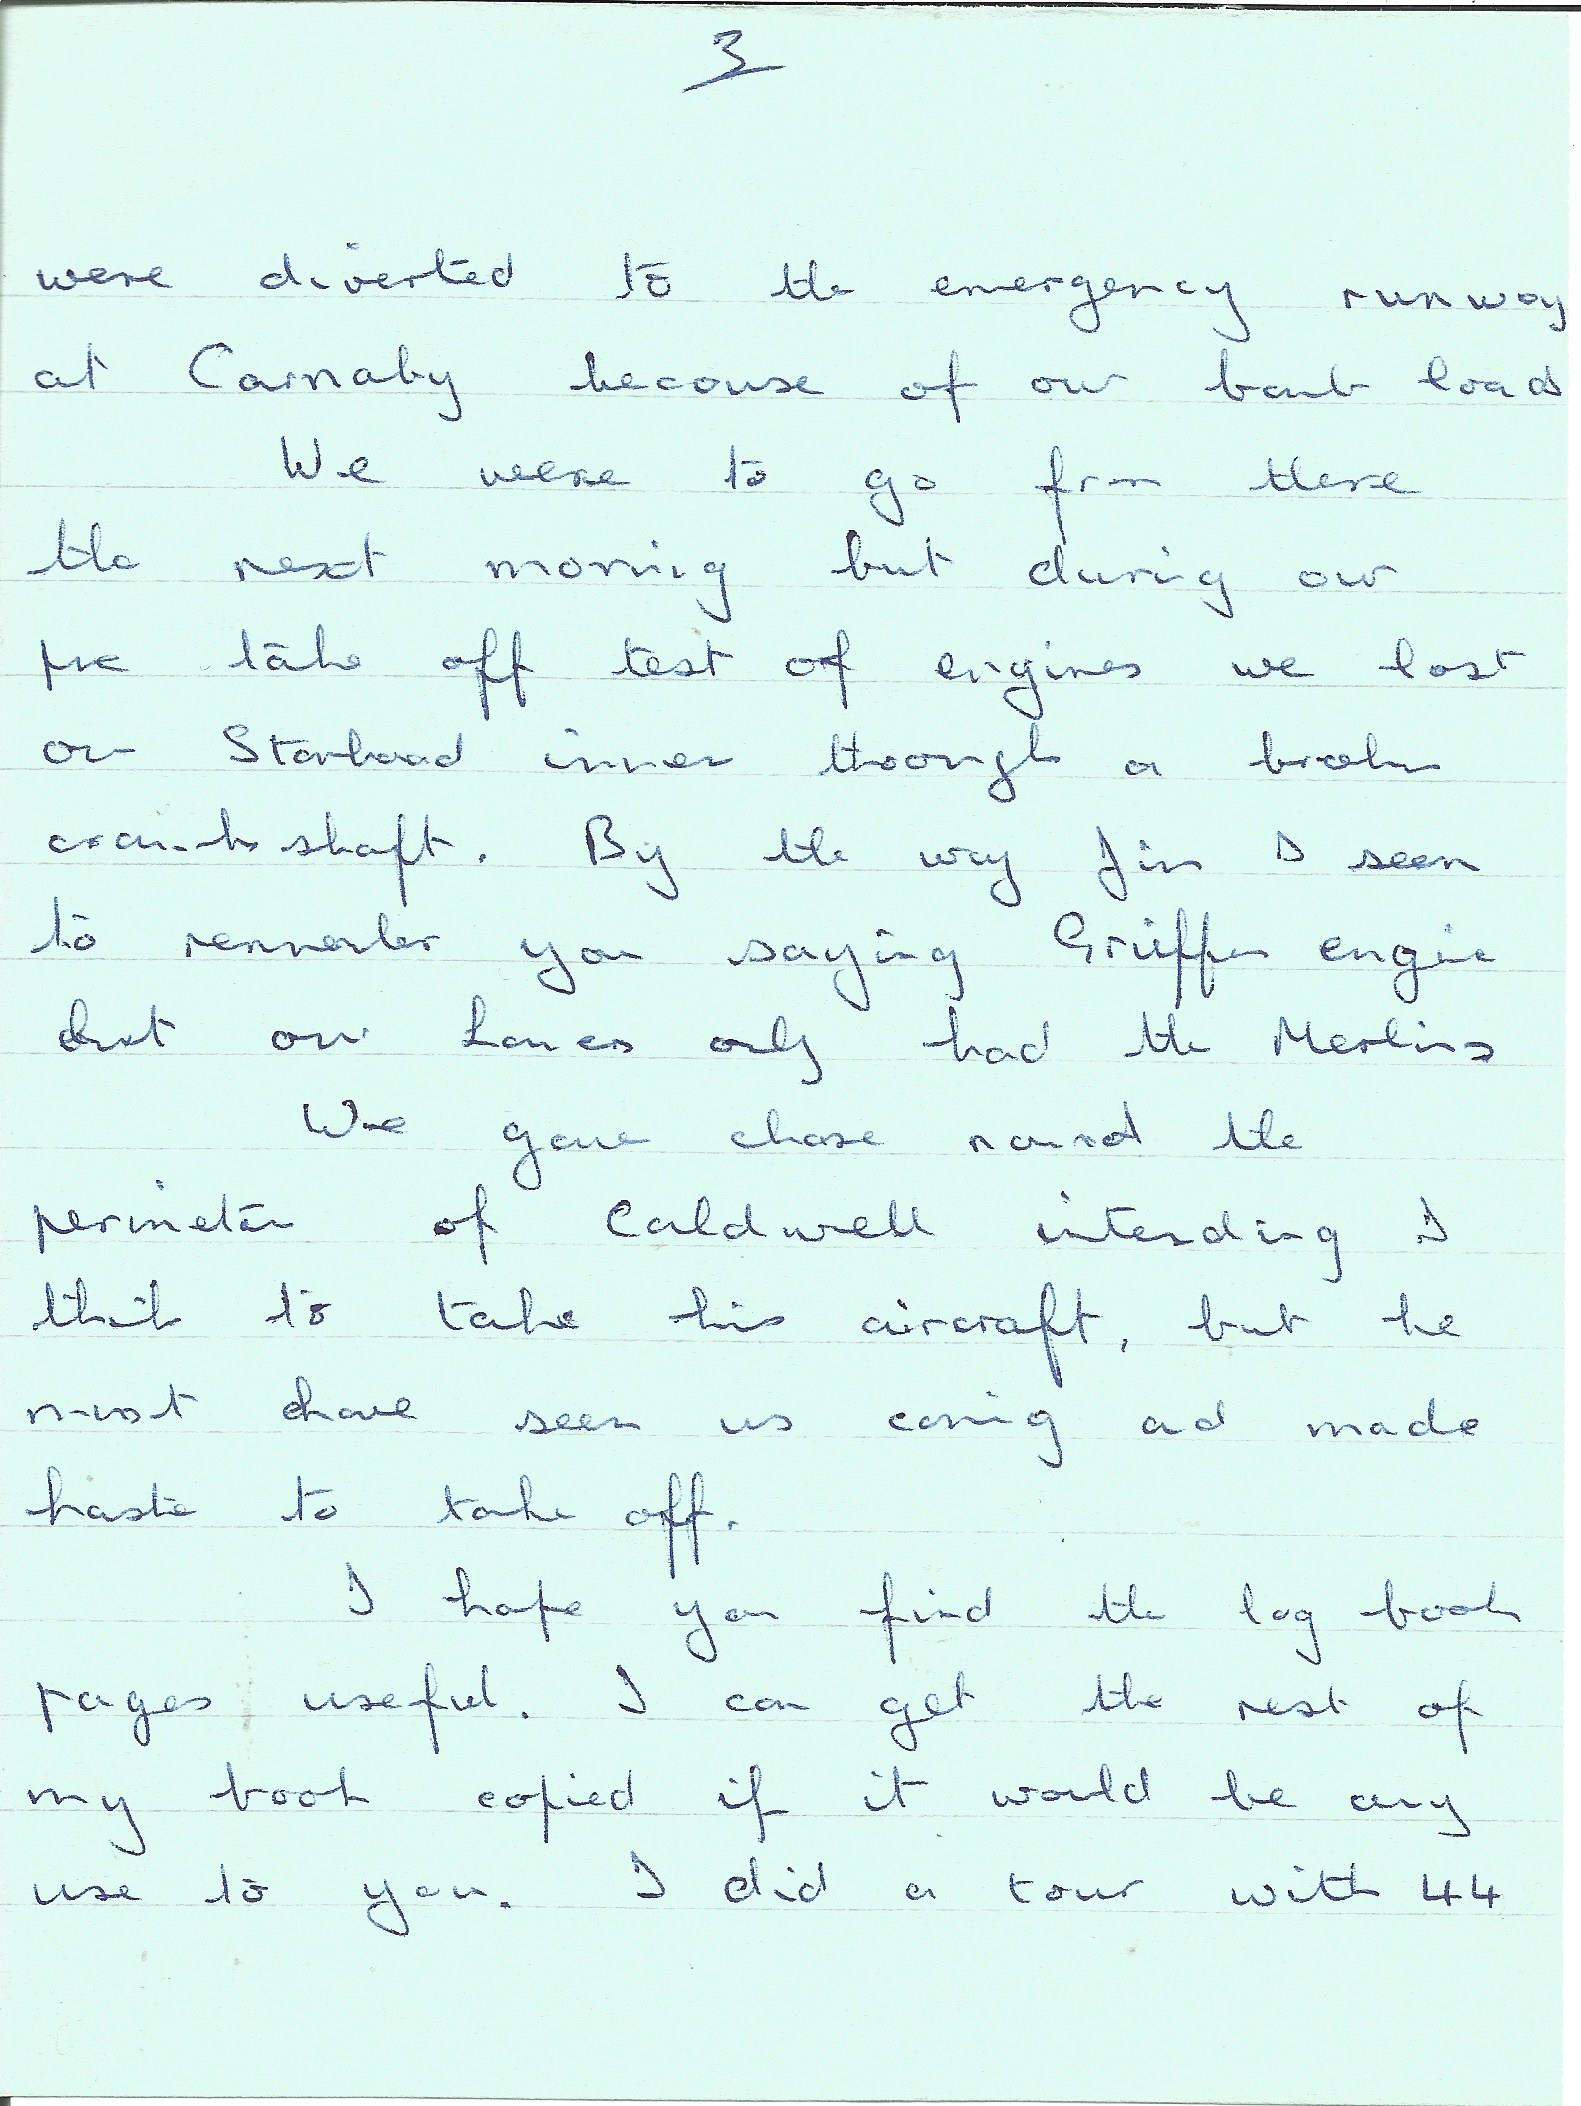 3
were diverted to the emergency runway
at Carnaby because of our bomb load
We were to go from there
the next morning but during our
pre take off test of engines we lost
our Starboard inner through a broken
crankshaft. By the way Jim I seem
to remember you saying Griffon engine
but our Lancs only had the Merlins
We gave chase round the
perimeter of Caldwell intending I
think to take his aircraft, but he
must have seen us coming and made
haste to take off.
I hope you find the log book
pages useful. I can get the rest of
my book copied if it would be any
use to you. I did a tour with 44